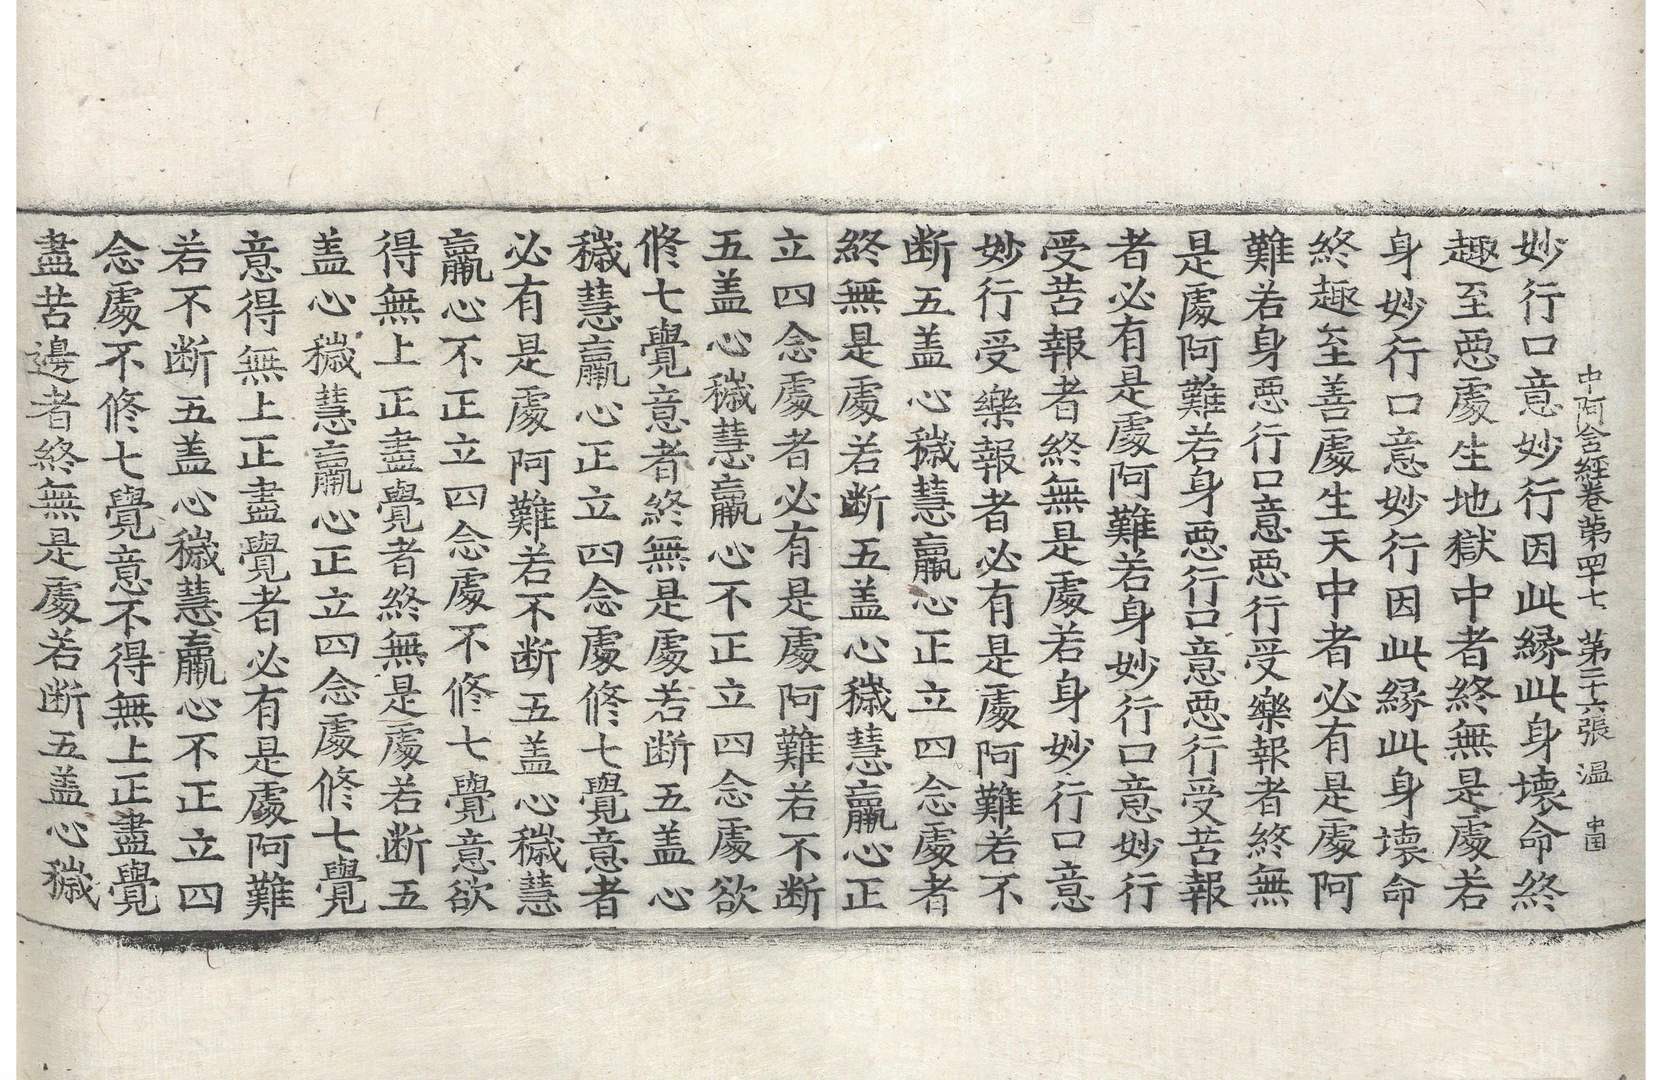 中阿含經卷第四十七 第二十六張 溫 中囯
妙行口意妙行因此縁此身壞命終
趣至惡處生地獄中者終無是處若
身妙行口意妙行因此縁此身壞命
終趣至善處生天中者必有是處阿
難若身惡行口意惡行受樂報者終無
是處阿難若身惡行口意惡行受苦報
者必有是處阿難若身妙行口意妙行
受苦報者終無是處若身妙行口意
妙行受樂報者必有是處阿難若不
断五盖心穢慧羸心正立四念處者
終無是處若断五盖心穢慧羸心正
立四念處者必有是處阿難若不断
五盖心穢慧羸心不正立四念處欲
修七覺意者終無是處若断五盖心
穢慧羸心正立四念處修七覺意者
必有是處阿難若不断五盖心穢慧
羸心不正立四念處不修七覺意欲
得無上正盡覺者終無是處若断五
盖心穢慧羸心正立四念處修七覺
意得無上正盡覺者必有是處阿難
若不断五盖心穢慧羸心不正立四
念處不修七覺意不得無上正盡覺
盡苦邊者終無是處若断五盖心穢